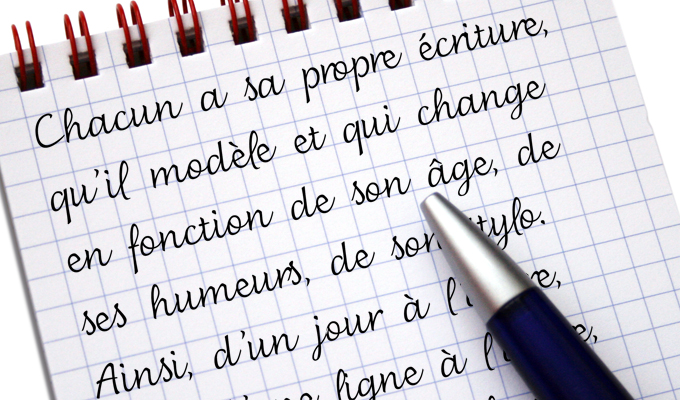 Chacun a sa propre écriture,
qu'il modèle et qui change
en fonction de son âge, de
ses humeurs, de son stylo.
Ainsi, d'un jour à
ligne à